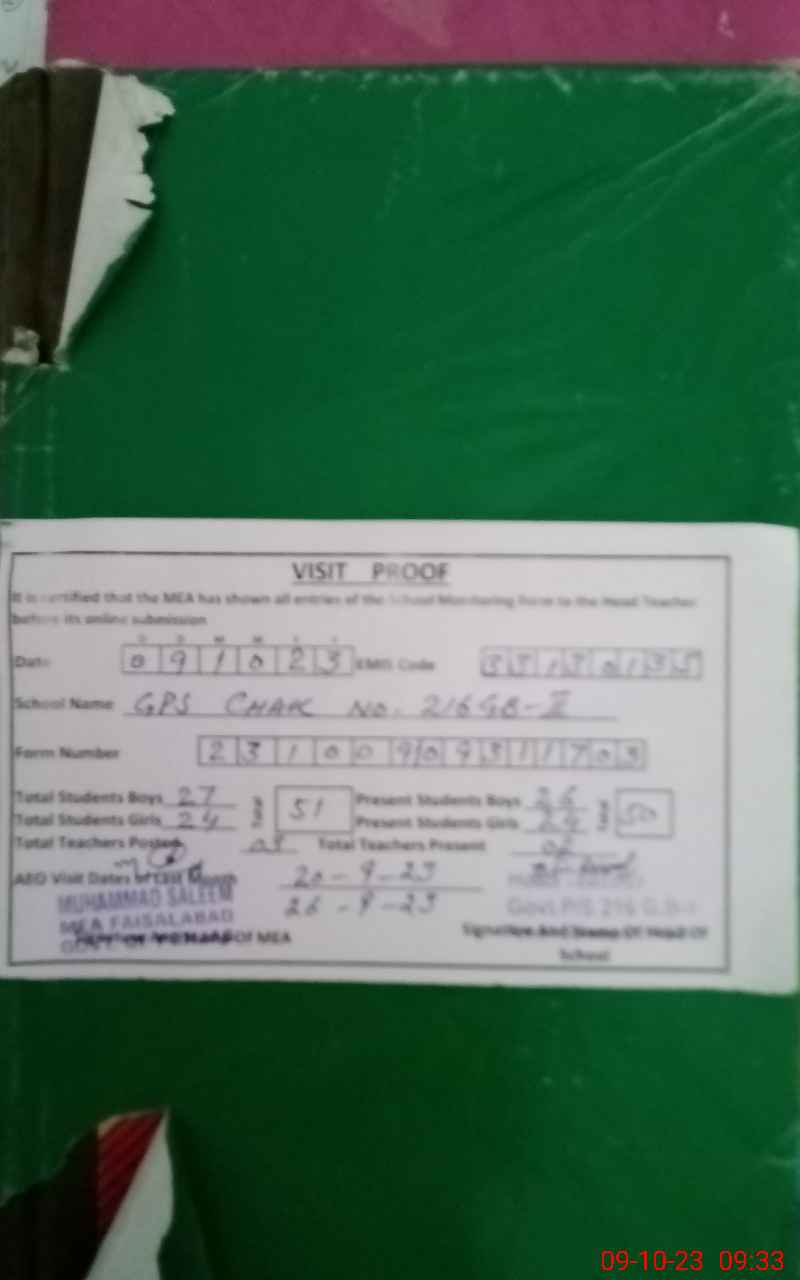 VISIT PROOF
It is certified that the MEA has shown all entries of the School Monitoring Form to the Head Teacher
before its online submission
D D M M Y Y
Date 0 9 1 0 2 3 EMIS Code 3 3 1 3 0 1 3 5
School Name GPS CHAK NO. 216 GB-II
Form Number 2 3 1 0 0 9 0 9 3 1 1 7 0 3
Total Students Boys 27 51 Present Students Boys 26 50
Total Students Girls 24 Present Students Girls 24
Total Teachers Posted Total Teachers Present 02
AEO Visit Dates of Last Month 20-9-23
26-9-23
MUHAMMAD SALEEM
MEA FAISALABAD Govt P/S 216 G.B-
GOVT OF of MEA Signature And Stamp Of Head Of
School
09-10-23 09:33